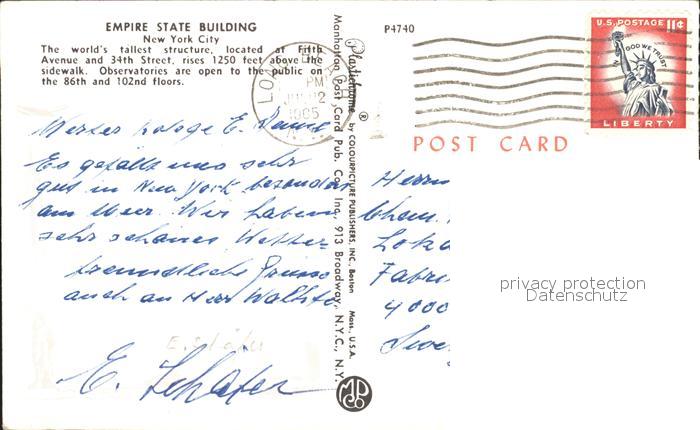 EMPIRE STATE BUILDING
New York City
The world's tallest structure, located at Fifth
Avenue and 34th Street, rises 1250 feet above the
sidewalk. Observatories are open to the public on
the 86th and 102nd floors.
Es gefällt uns sehr
gut in New York besonders
am Meer. Wir haben
sehr schönes Wetter
freundliche Grüsse
auch an Herr
E. Schäfer
E. Schäfer
Plastichrome ® by COLOURPICTURE PUBLISHERS, INC., Boston Mass., U.S.A.
Manhattan Post Card Pub. Co., Inc., 913 Broadway, N.Y.C., N.Y.
MPC
PM
P4740
U.S. POSTAGE 11¢
IN GOD WE TRUST
LIBERTY
POST CARD
Herrn
Chem.
Loka
Fabri
4000
privacy protection
Datenschutz